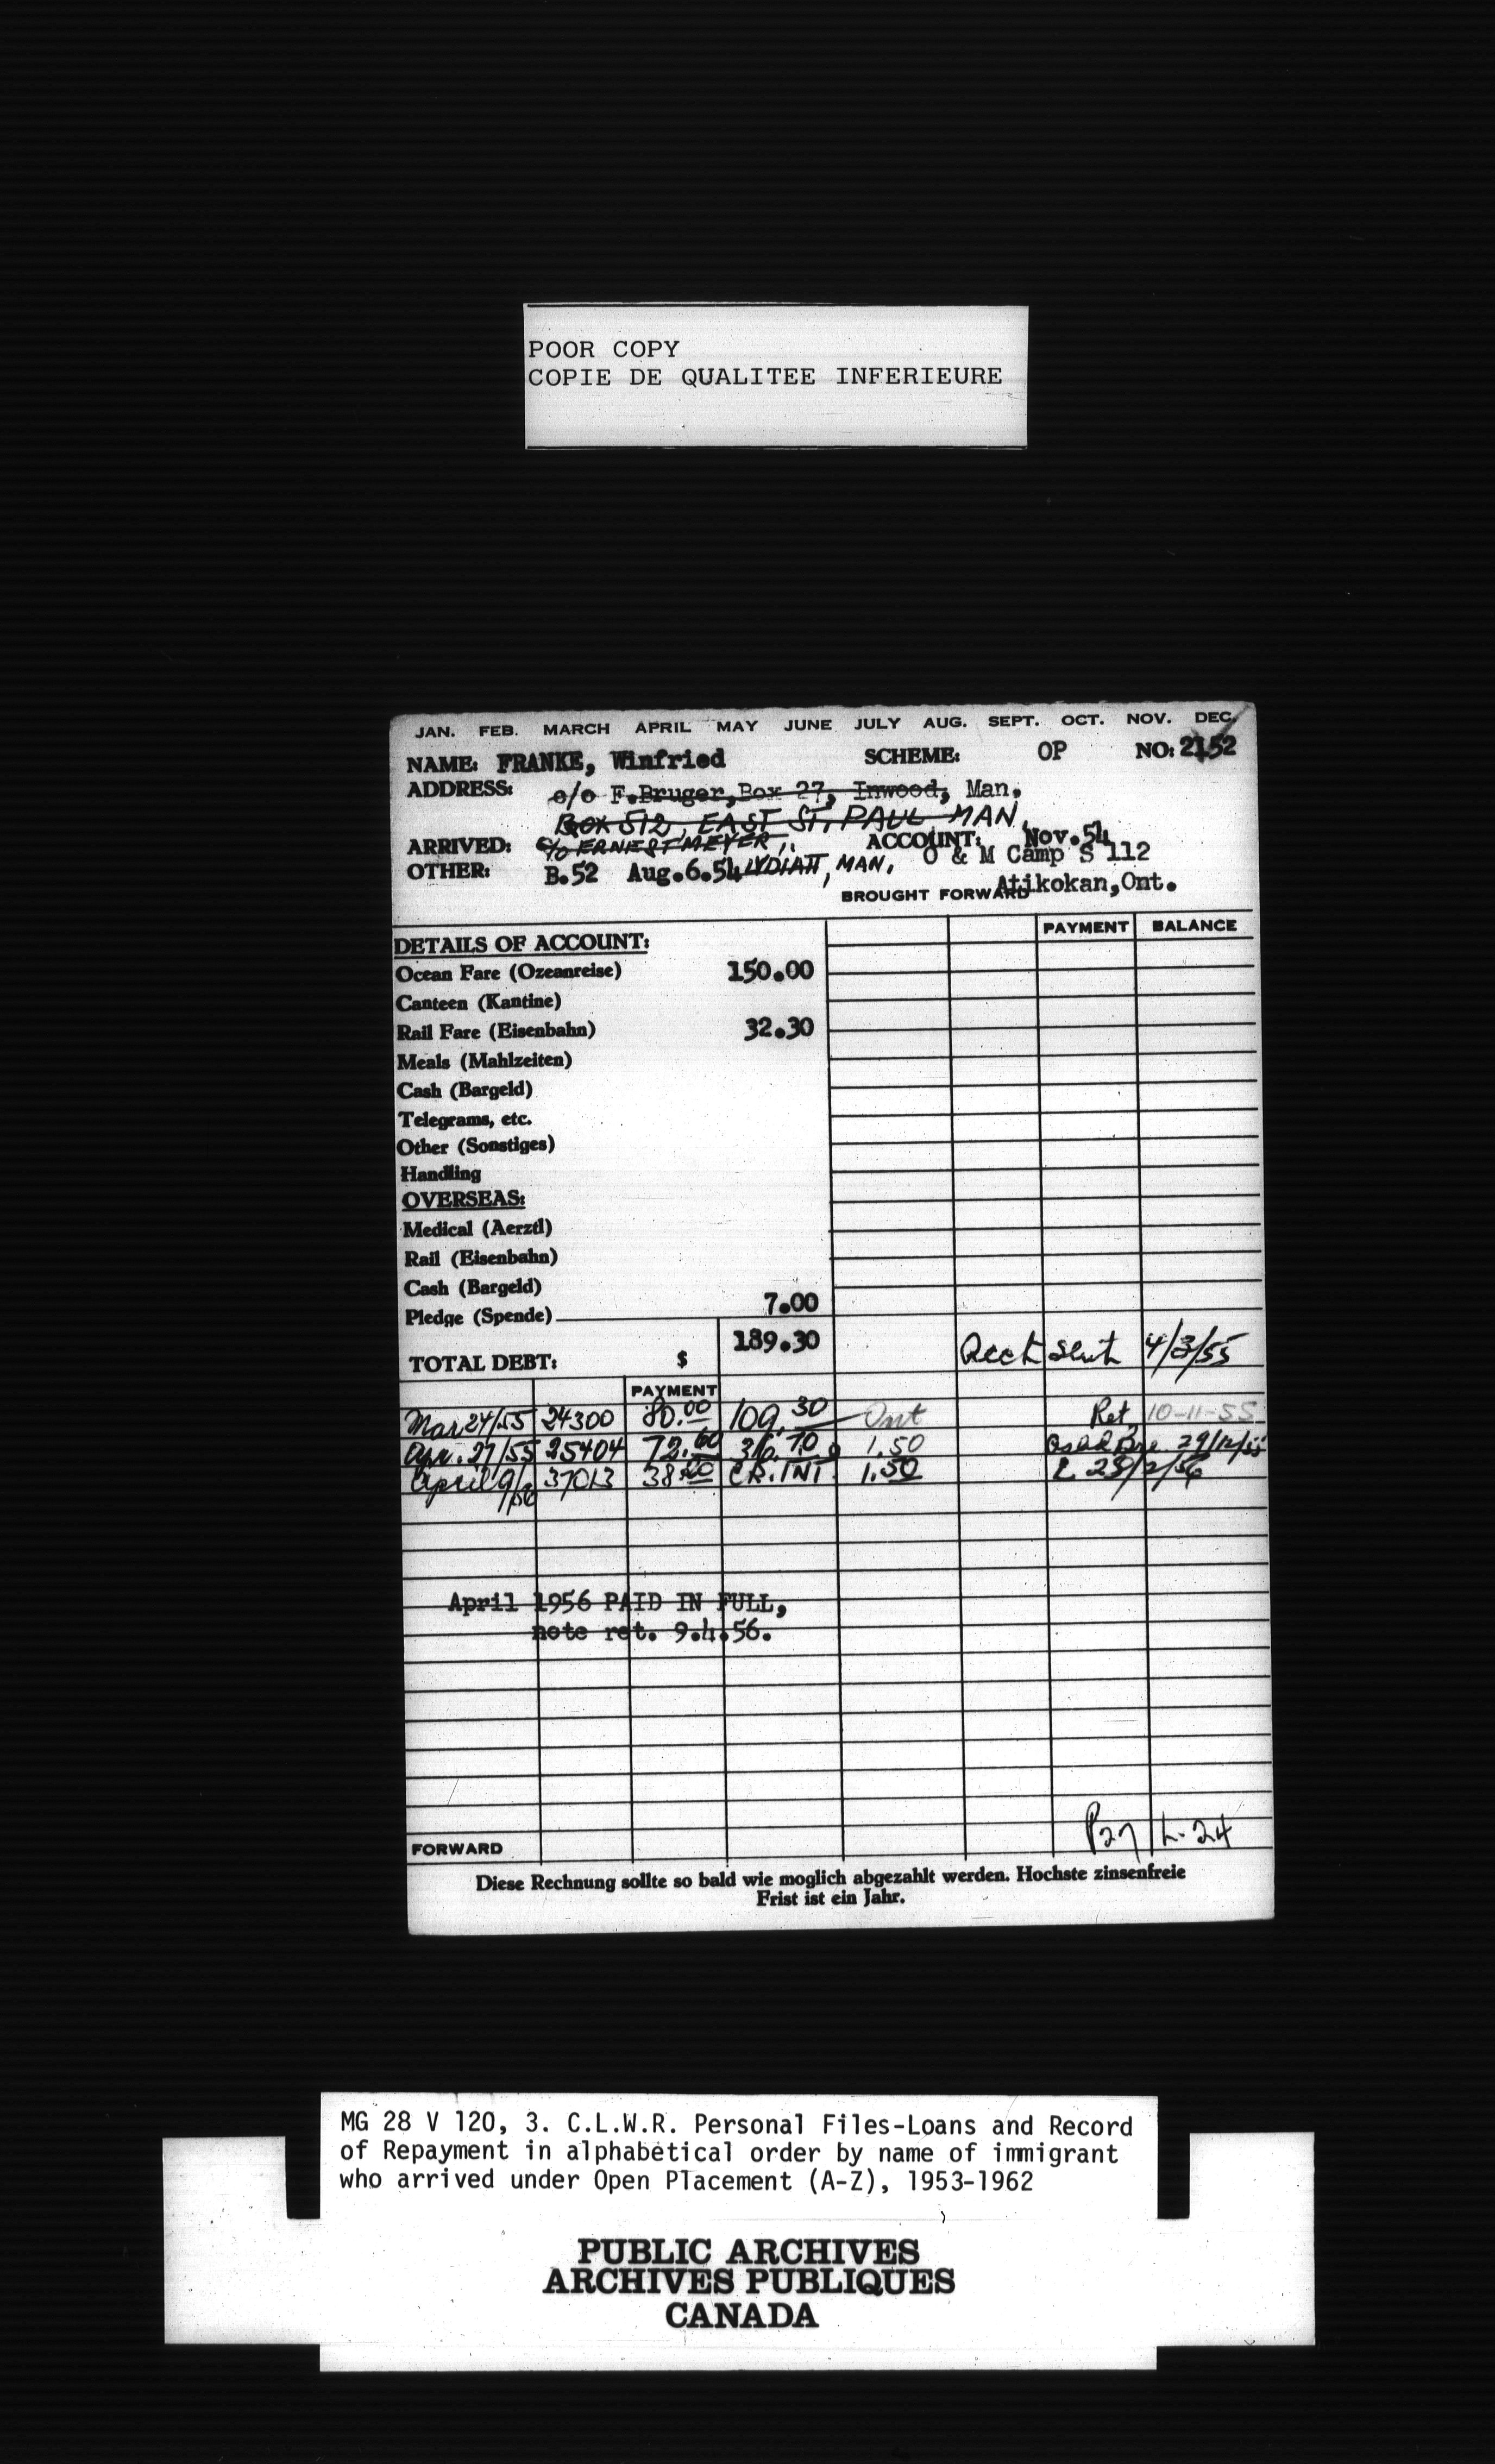 POOR COPY
COPIE DE QUALITEE INFERIEURE
JAN. FEB. MARCH APRIL MAY JUNE JULY AUG. SEPT. OCT. NOV. DEC.
NAME: FRANKE, Winfried SCHEME: OP NO: 2152
ADDRESS: c/o F.Bruger,Box 27, Inwood, Man.
BOX 512, EAST ST. PAUL MAN.
ARRIVED: c/o ERNEST MEYER, ACCOUNT: Nov.54
OTHER: B.52 Aug.6.54 LYDIATT, MAN. O & M Camp S 112
BROUGHT FORWARD Atikokan,Ont.
PAYMENT BALANCE
DETAILS OF ACCOUNT:
Ocean Fare (Ozeanreise) 150.00
Canteen (Kantine)
Rail Fare (Eisenbahn) 32.30
Meals (Mahlzeiten)
Cash (Bargeld)
Telegrams, etc.
Other (Sonstiges)
Handling
OVERSEAS:
Medical (Aerztl)
Rail (Eisenbahn)
Cash (Bargeld)
Pledge (Spende) 7.00
TOTAL DEBT: $ 189.30 sent 4/3/55
PAYMENT
Mar 24/55 24300 80.00 109.30 Ret. 10-11-55
Apr. 27/55 25404 72.60 36.70 1.50 29/12/55
April 9/56 37013 38.20 CR. INT. 1.50
April 1956 PAID IN FULL,
note ret. 9.4.56.
P27 L-24
FORWARD
Diese Rechnung sollte so bald wie moglich abgezahlt werden. Hochste zinsenfreie
Frist ist ein Jahr.
MG 28 V 120, 3. C.L.W.R. Personal Files-Loans and Record
of Repayment in alphabetical order by name of immigrant
who arrived under Open Placement (A-Z), 1953-1962
PUBLIC ARCHIVES
ARCHIVES PUBLIQUES
CANADA